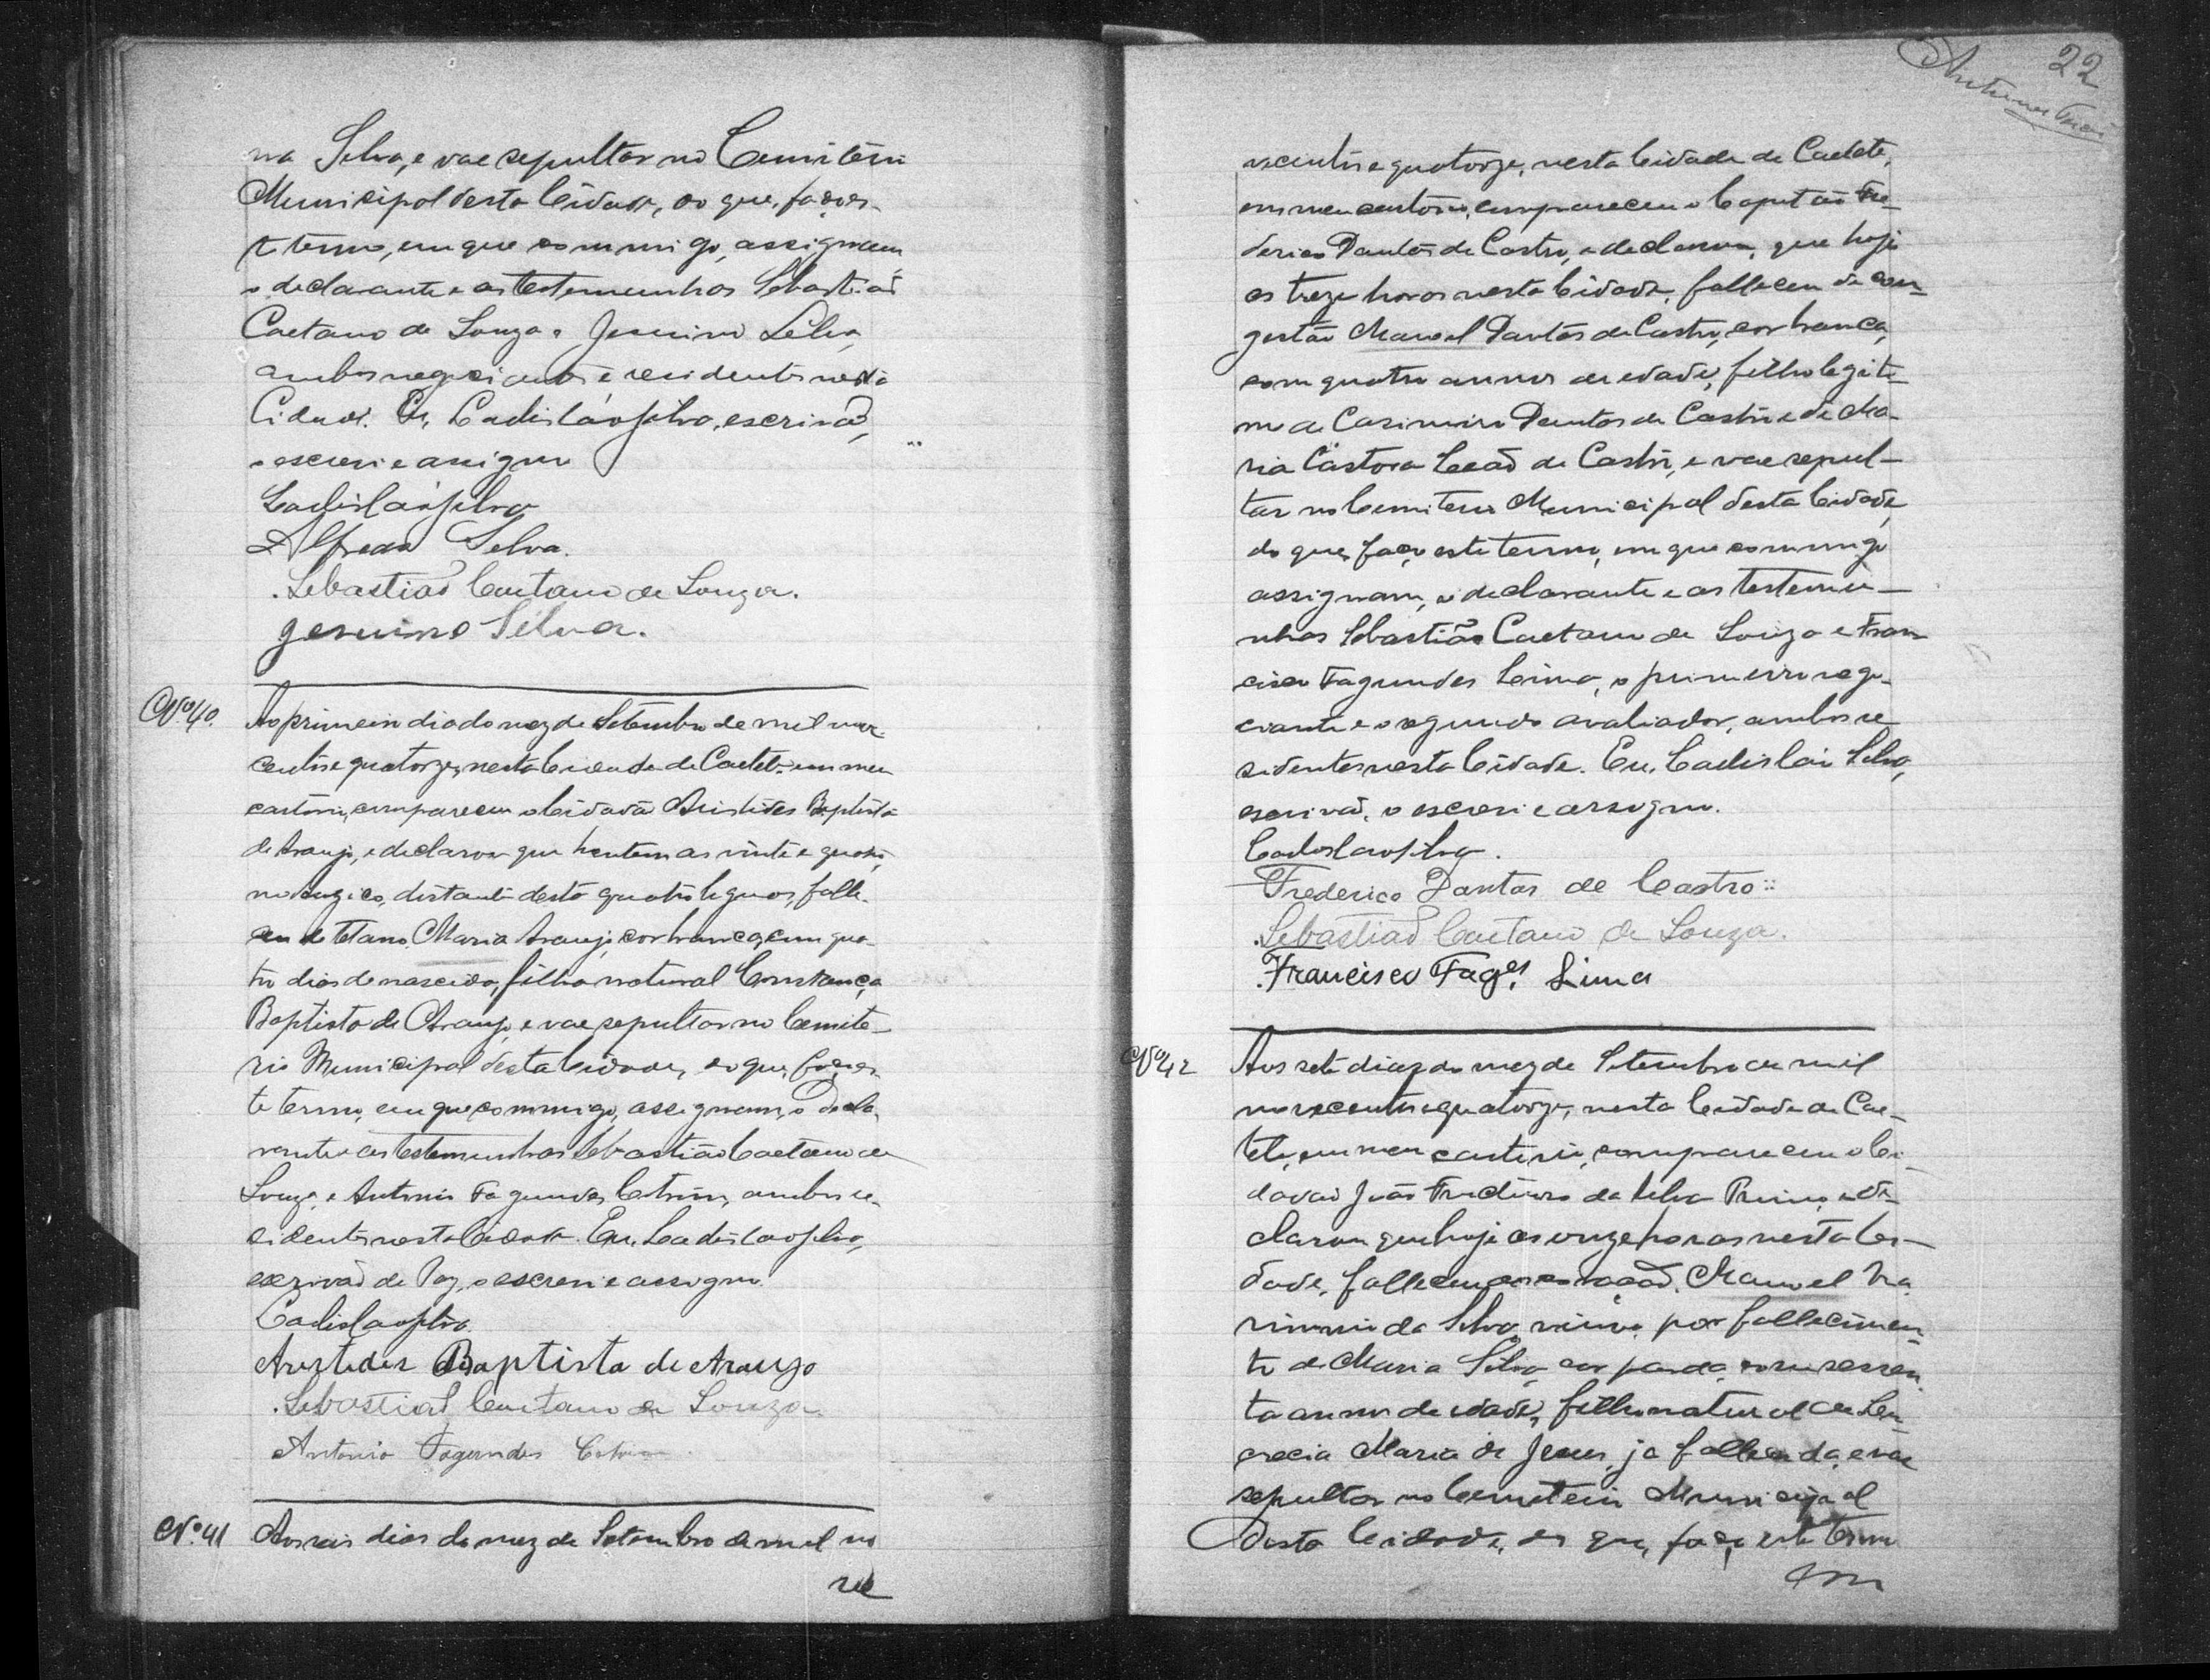 na Silva, e vae sepultar no Cemiterio
Municipal desta Cidade, do que, faço es-
te termo, em que commigo, assignam
o declarante e as testemunhas Sebastião
Caetano de Souza e Jesuino Silva,
ambos negociantes e residentes nesta
Cidade. Eu, Ladisláo Silva, escrivão,
o escrevi e assigno
Ladisláo Silva
Alfredo Silva.
Sebastião Caetano de Souza.
Jesuino Silva.
Nº 40. Ao primeiro dia do mez de Setembro de mil nove-
centos e quatorze, nesta Cidade de Caeteté em meu
cartorio, compareceu o Cidadão Aristides Baptista
de Araujo, e declarou que hontem as vinte e quatro,
no distante desta quatro leguas, falle-
ceu de tetano, Maria Araujo, cor branca, com qua-
tro dias de nascida, filha natural Constança
Baptista de Araujo, e vae sepultar no Cemite-
rio Municipal desta Cidade, do que, faço es-
te termo, em que commigo, assignam, o decla-
rante e as testemunhas Sebastião Caetano de
Souza, e Antonio Fagundes Cotrim, ambos re-
sidentes nesta Cidade. Eu, Ladisláo Silva,
escrivão de Paz, o escrevi e assigno.
Ladisláo Silva
Aristides Baptista de Araujo
Sebastião Caetano de Souza.
Antonio Fagundes Cotrim
Nº 41 Aos seis dias do mez de Setembro de mil no
ve
22
vecentos e quatorze, nesta Cidade de Caeteté,
em meu cartorio, compareceu o Capitão Fre-
derico Dantas de Castro, e declarou, que hoje
as treze horas nesta Cidade, falleceu de con-
gestão Manoel Dantas de Castro, cor branca,
com quatro annos de edade, filho legiti-
mo de Casimiro Dantas de Castro e de Ma-
ria Castora Leão de Castro, e vae sepul-
tar no Cemiterio Municipal desta Cidade,
do que, faço este termo, em que commigo
assignam, o declarante e as testemu-
nhas Sebastião Caetano de Souza e Fran
cisco Fagundes Lima, o primeiro nego-
ciante e o segundo avaliador, ambos re
sidentes nesta Cidade. Eu, Ladisláo Silva,
escrivão, o escrevi e assigno.
Ladisláo Silva.
Frederico Dantas de Castro
Sebastião Caetano de Souza.
Francisco Fag.es Lima
Nº 42 Aos sete dias do mez de Setembro de mil
novecentos e quatorze, nesta Cidade de Cae-
teté, em meu cartorio, compareceu o Ci-
dadão João da Silva Primo, e de-
clarou que hoje as onze horas nesta Ci-
dade, falleceu do coração, Manoel
da Silva, viuvo por fallecimen-
to de Maria Silva, cor parda, com sessen-
ta annos de edade, filho natural de Lu-
crecia Maria de Jesus, ja fallecida, e vae
sepultar no Cemiterio Municipal
desta Cidade, do que, faço este termo
em